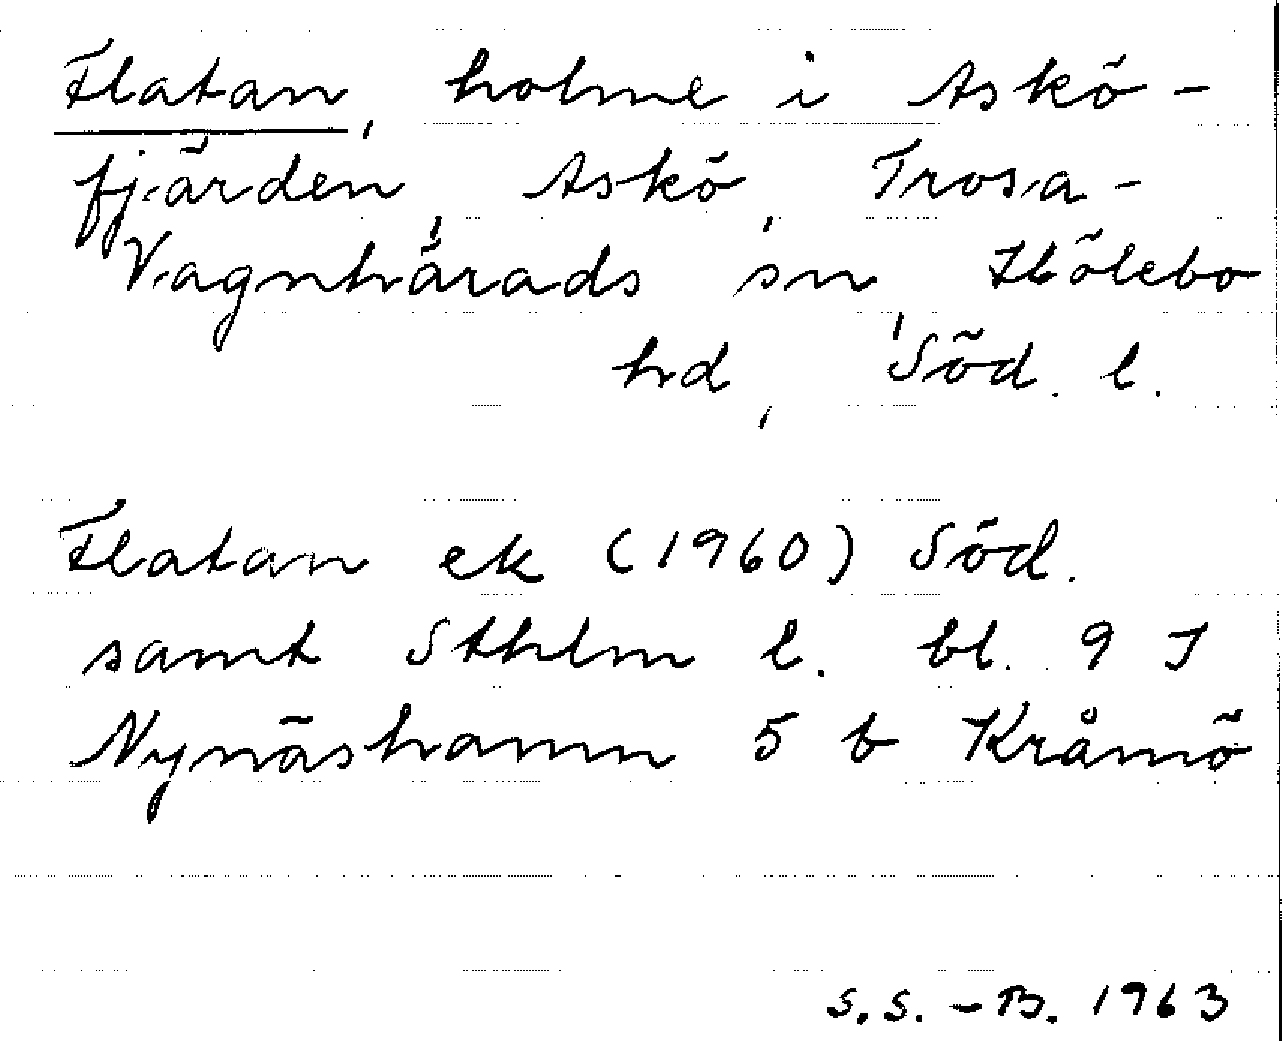 Flatan, holme i Askö-
fjärden, Askö, Trosa-
Vagnhärads sn, Hölebo
hd, Söd. l.
Flatan ek (1960) Söd.
samt Sthlm l. bl. 9 I
Nynäshamn 5 b Kråmö
S.S.-B. 1963